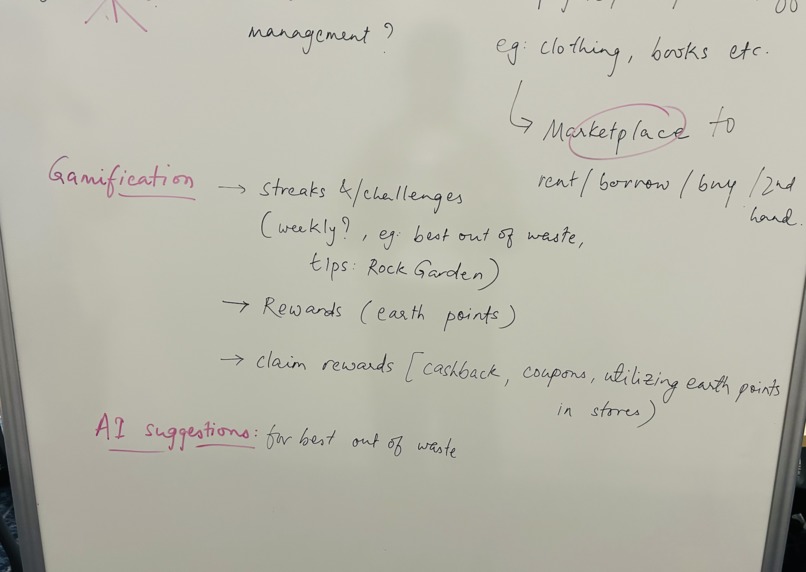 management ?
eg: clothing, books etc.
↳ Marketplace to
rent/borrow / buy / 2nd
hand.
Gamification → streaks &/challenges
(weekly?, eg: best out of waste,
tips: Rock Garden)
→ Rewards (earth points)
→ claim rewards [cashback, coupons, utilizing earth points
in stores)
AI suggestions: for best out of waste